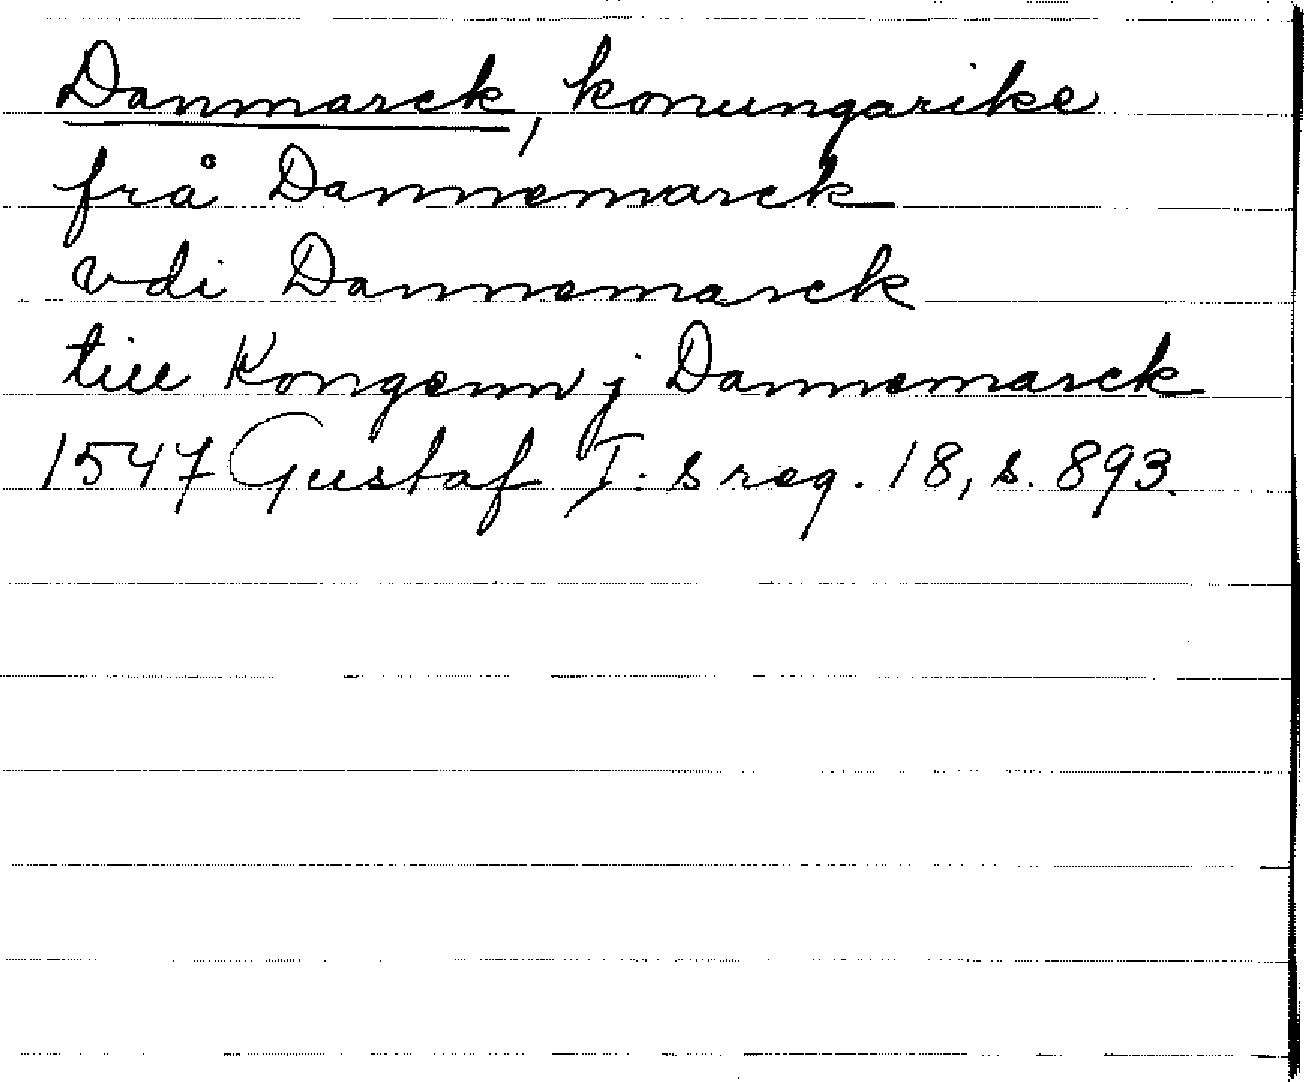 Danmarck, konungarike
frå Dannemarck
vdi Dannemarck
till Kongenn j Dannemarck
1547 Gustaf I:s reg. 18, s. 893.